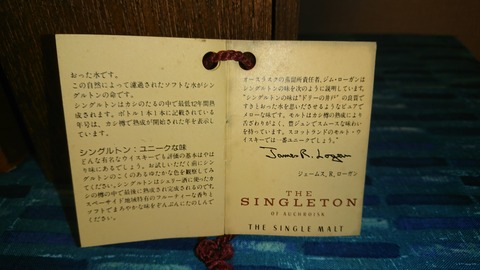 おった水です。
この自然によって濾過されたソフトな水がシン
グルトンの命です。
シングルトンはカシのたるの中で最低12年間熟
成されます。ボトル1本1本に記載されている
年号は、カシ樽で熟成が開始された年を表示し
ています。
シングルトン：ユニークな味
どんな有名なウイスキーでも評価の基本はやは
り味にあるでしょう。お試しいただく前にシン
グルトンのこくのあるゆたかな色を観察してみ
てください。シングルトンはシェリー酒に使ったカ
シの樽の中で最後に熟成され完成されるのです。
スペーサイド地域特有のフルーティーな香りと
ソフトでまろやかな味をどんぶんにたのしんで
ください。
オースリスクの蒸留所責任者、ジム・ローガンは
シングルトンの味を次のように説明しています。
"シングルトンの味は"ドリーの井戸"の良質で
すきとおった水を思いださせるようなピュアで
メローな味です。モルトはカシ樽の熟成により
舌ざわりがよく、豊ジュンでスムースな味わい
を持っています。スコットランドのモルト・ウ
イスキーでは一番ユニークでしょう。"
James R. Logan
ジェームス. R. ローガン
THE
SINGLETON
OF AUCHROISK
THE SINGLE MALT